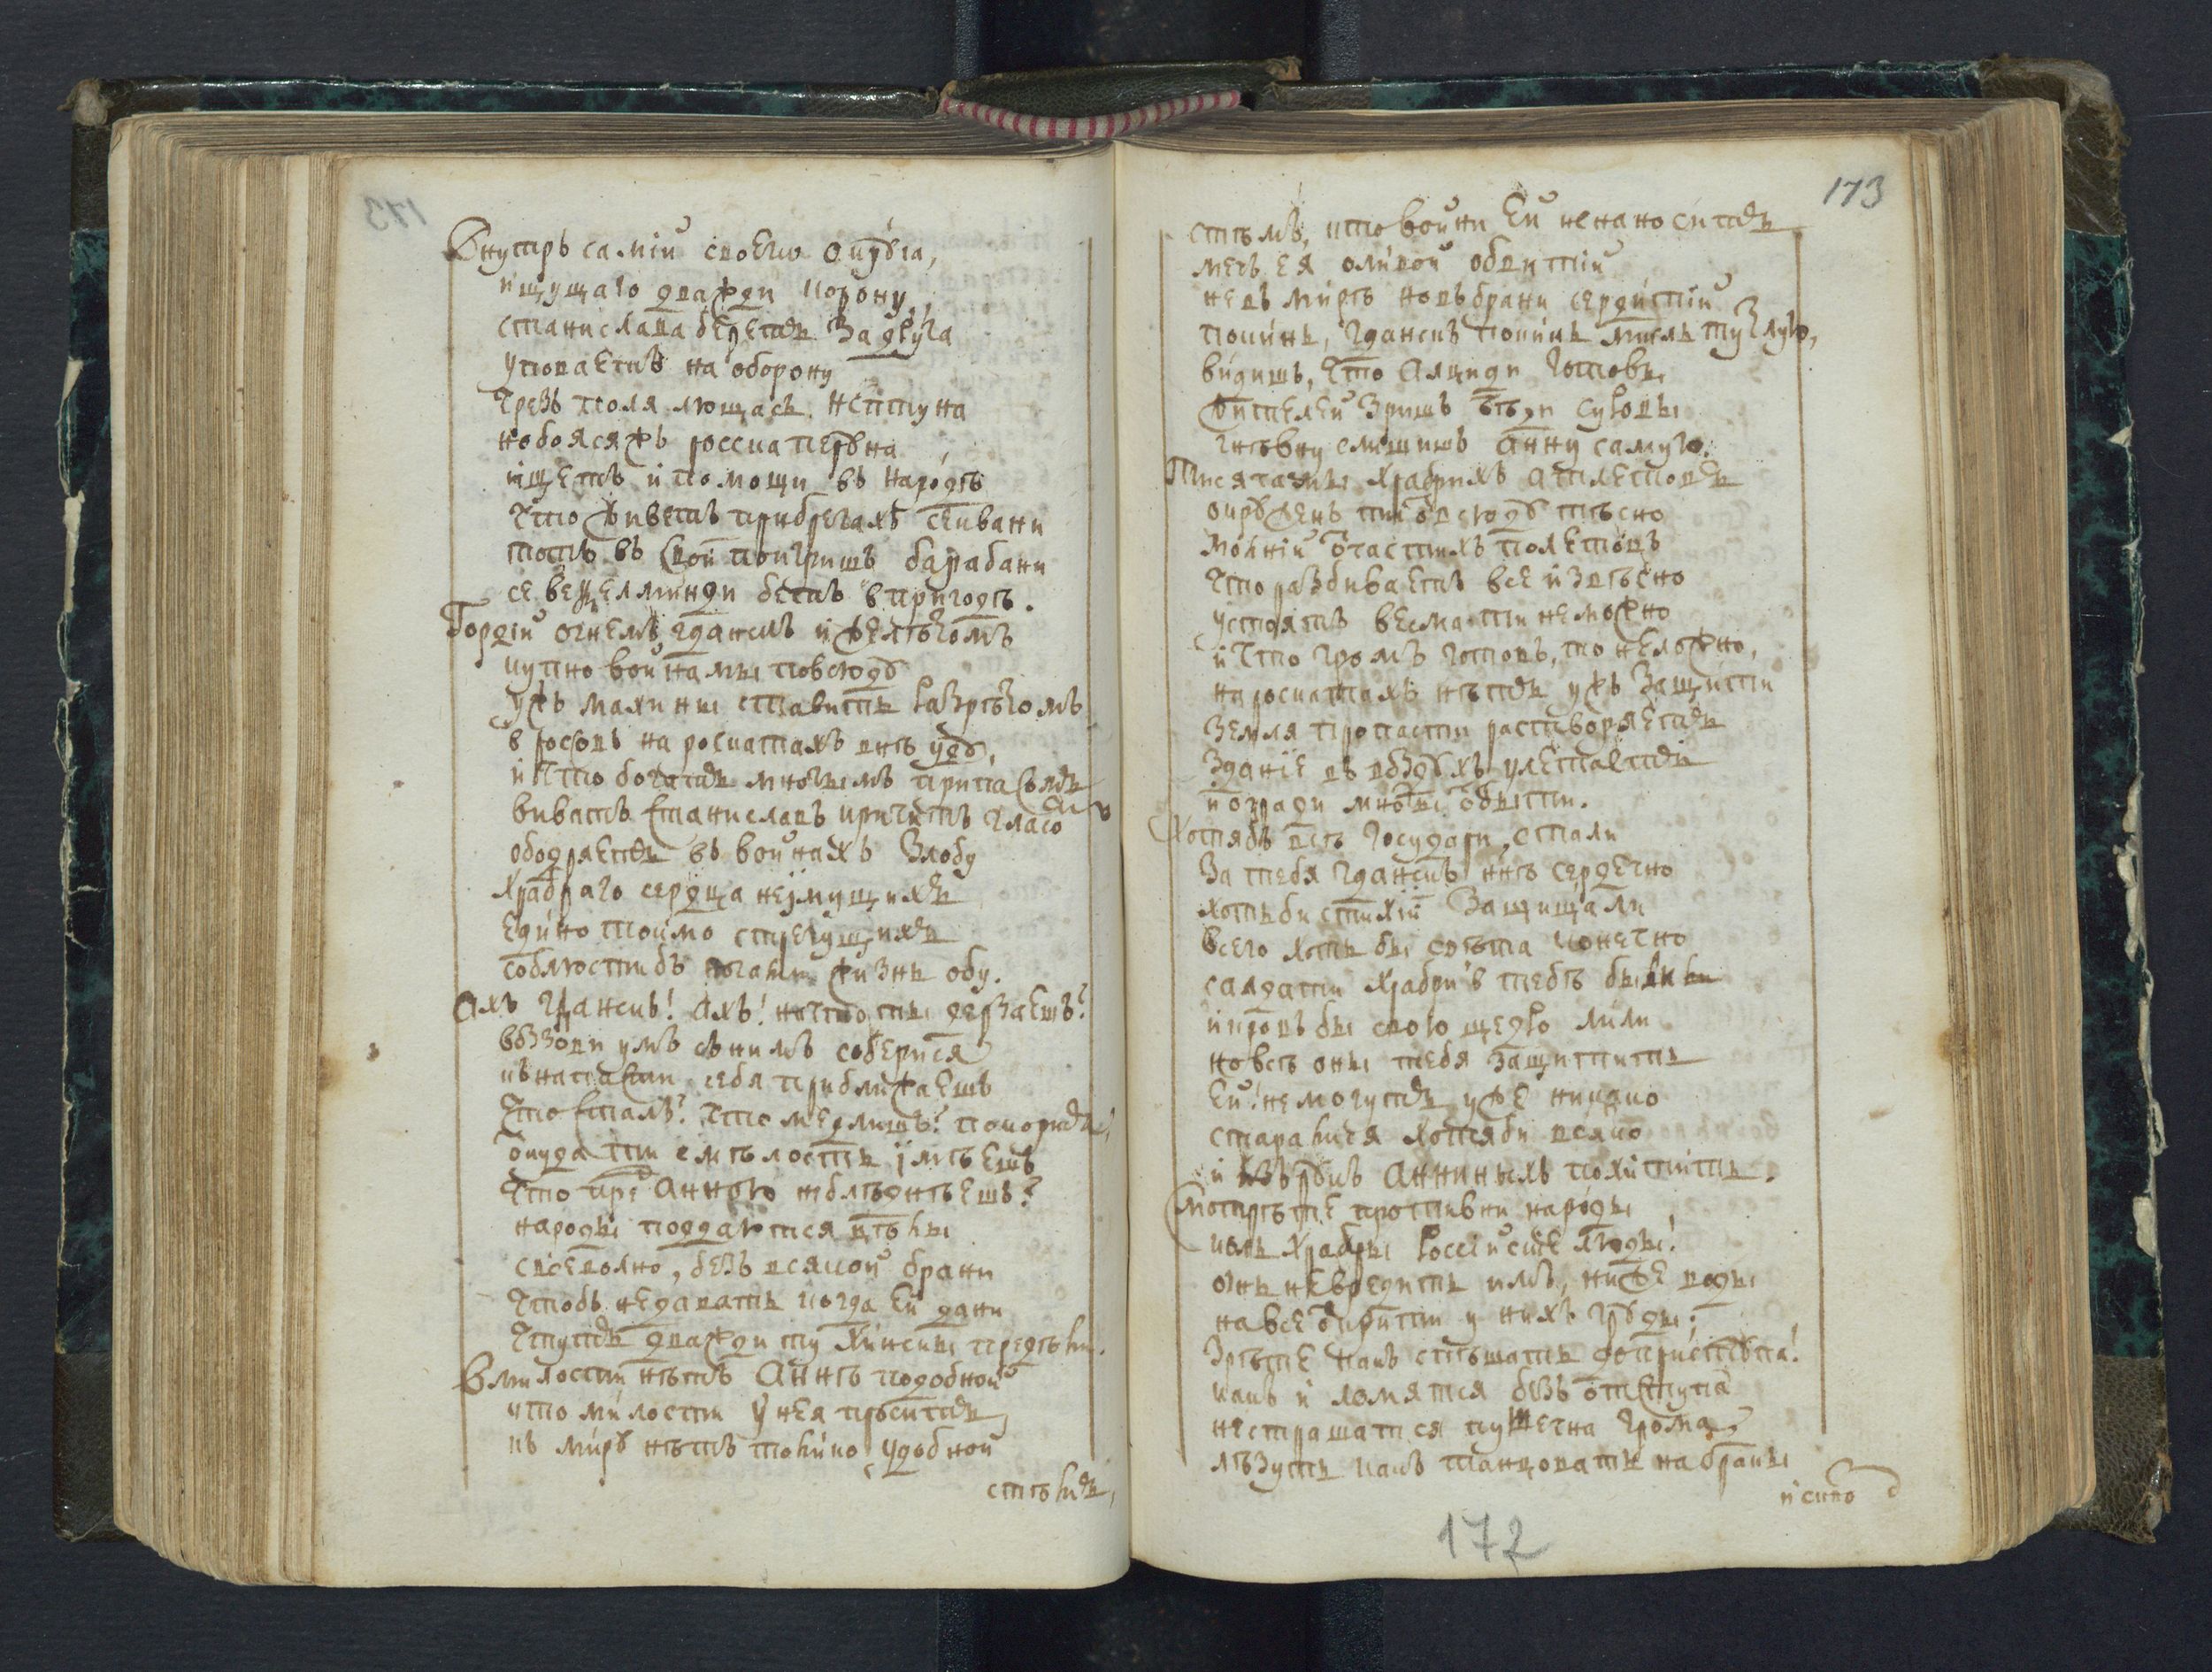 Внутрь самій своего округа,
ищущаго дважди корону,
станислава беретъ за друга
уповаетъ на оборону
Чрезъ поля лющась нептуна
но боясяжъ россиа перуна
ищетъ и помощи въ народѣ
Что живетъ при брегахъ секвани
тотъ въ свой проигришъ барабани
се велелминди бетъ в пригодѣ.
Гордій огнемъ гданскъ и желѣзомъ
купно войнами повсюду
ужъ махины ставитъ разрѣзомъ
в россовъ на роскатахъ внѣ уду,
и что богатъ многимъ припасомъ
виватъ станиславъ кричитъ гласо
ободряетъ въ войнахъ злобу
храбраго сердца неімущихъ
едино токмо стрегущихъ
соблюстибъ жизнь обу.
Ахъ Гданскъ! Ахъ! на что ты дерзаешъ?
возови умъ съ нимъ соберися
къ напасти себя приближаешъ
Что сталъ? Что медлишъ? покорисъ,
откуда ти смѣлость імѣешъ
Что пре Анною не блѣднѣешъ?
народы поддаются цѣлы
своеволно, безъ всякой брани
Чтобъ недавать когда ей дани
Чтутъ дважди ту хински предѣлы.
В милости нѣтъ Аннѣ подобной
кто милости у нея проситъ
къ миру нѣтъ толико удобной
стѣмъ,
173
стѣмъ, кто войни Ей не наноситъ
мечъ ея оливой обвитій
не въ миръ но въ брани сердитій
покинь, гданскъ покинь мисль ту злую,
видишъ, что Алциди готовы
жителей зришъ бѣди суровы
гнѣвну слишишъ Анну самую.
Тисящами храбрихъ атлетовъ
окруженъ ты повсюду тѣсно
молній отчастихъ полетовъ
Что разбиваетъ все извѣсно
устоять весма ти не можно
и что громъ готовъ, то неложно,
на роскатахъ нѣтъ ужъ защити
земля пропасти растворяетъ
зданіе въ воздухъ улетаетъ
и огради многы обыти.
Хотябъ всѣ государи стали
За тебя гданскъ інѣ сердечно
хотьби стихіи Защищали
всего хоть бы свѣта конечно
салдати храбри в тебѣ были
и кровь бы свою щедро лили
но всѣ оны тебя защитить
Ей! не могутъ уже никако
старалися хотяби всяко
и изъ рукъ Анниныхъ похитить.
Смотрѣте противни народы
коль храбры Россійскіе людъ!
огнь невредитъ имъ, ниже воды
на все открити у нихъ груды;
Зрѣте какъ спѣшатъ до приступа!
какъ и ломятся безъ отступа
не страшатся пушечна грома,
лѣзутъ какъ танцовать на браны
и скво
172